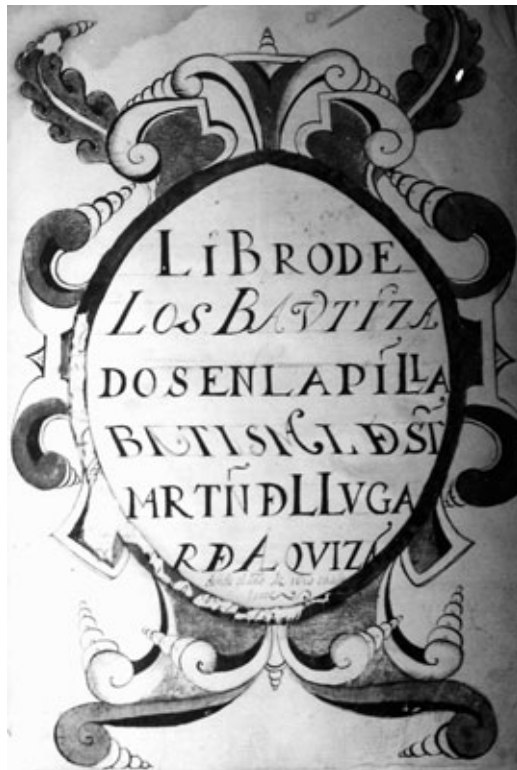 LIBRO DE
LOS BAVTIZA
DOS EN LA PILLA
BATISMAL DE ST
MARTIN DE LLVGA
R DE AQVIZA